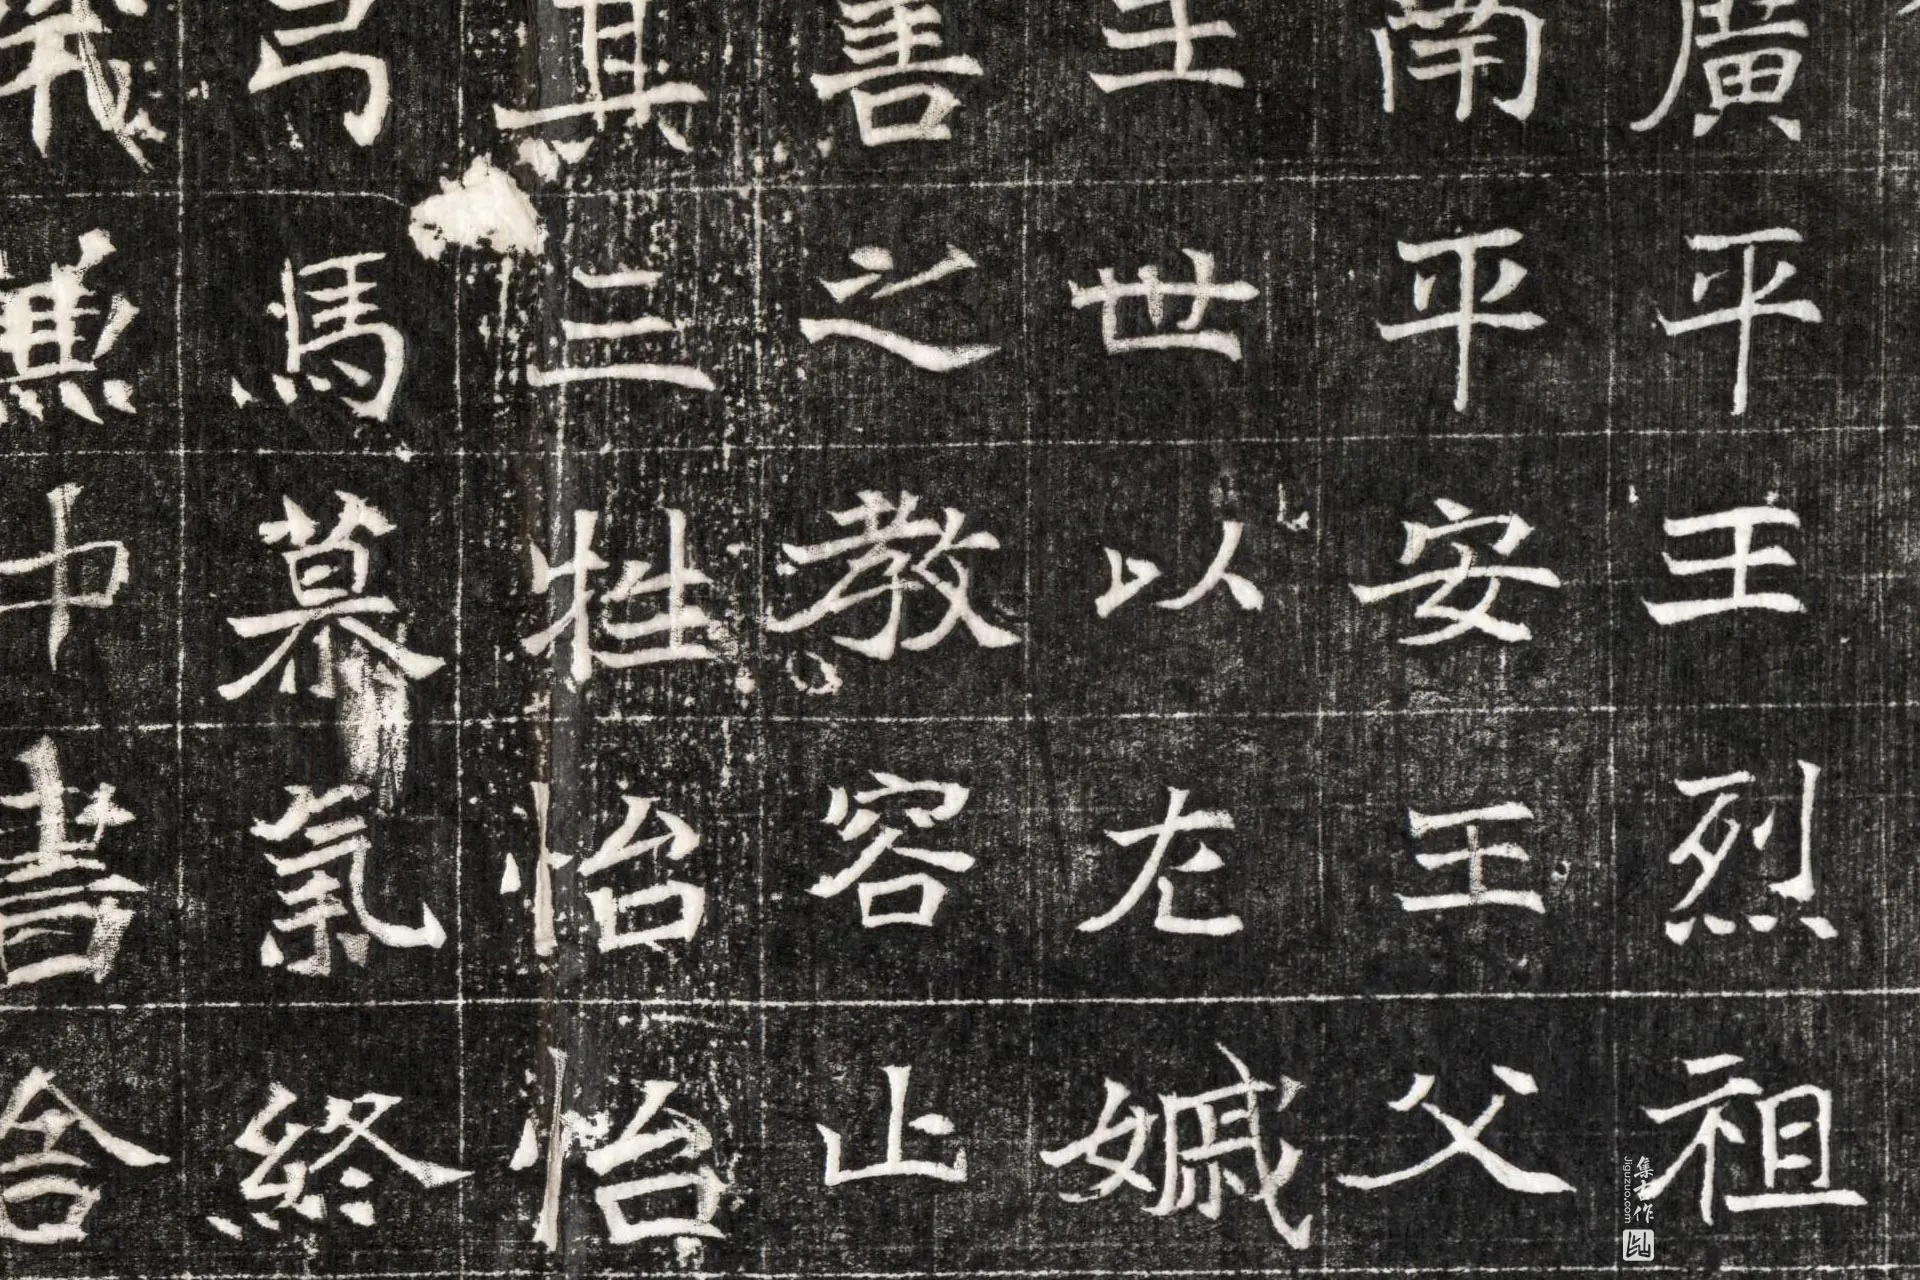 廣平王烈祖
南平安王父
王世以左嫄
善之教容止
其三牲怡怡
弓馬慕氣終
中書舍
集古作
Jiguzuo.com